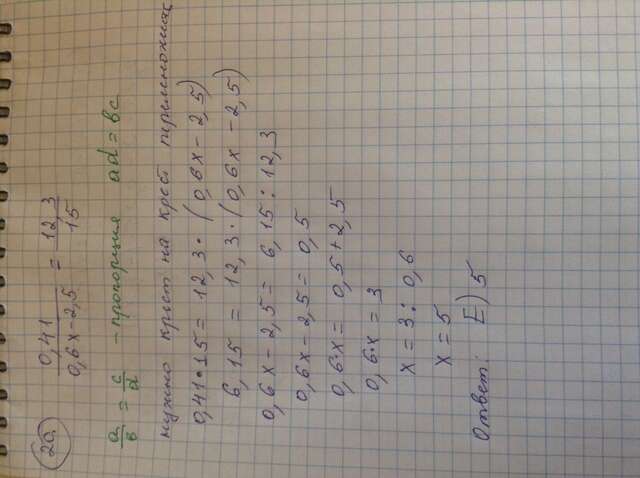 20. 0,41/0,6x-2,5 = 12,3/15
a/b = c/d - пропорция ad = bc
нужно крест на крест перемножить
0,41·15 = 12,3·(0,6x - 2,5)
6,15 = 12,3·(0,6x - 2,5)
0,6x - 2,5 = 6,15 : 12,3
0,6x - 2,5 = 0,5
0,6·x = 0,5 + 2,5
0,6·x = 3
x = 3 : 0,6
x = 5
Ответ: E) 5